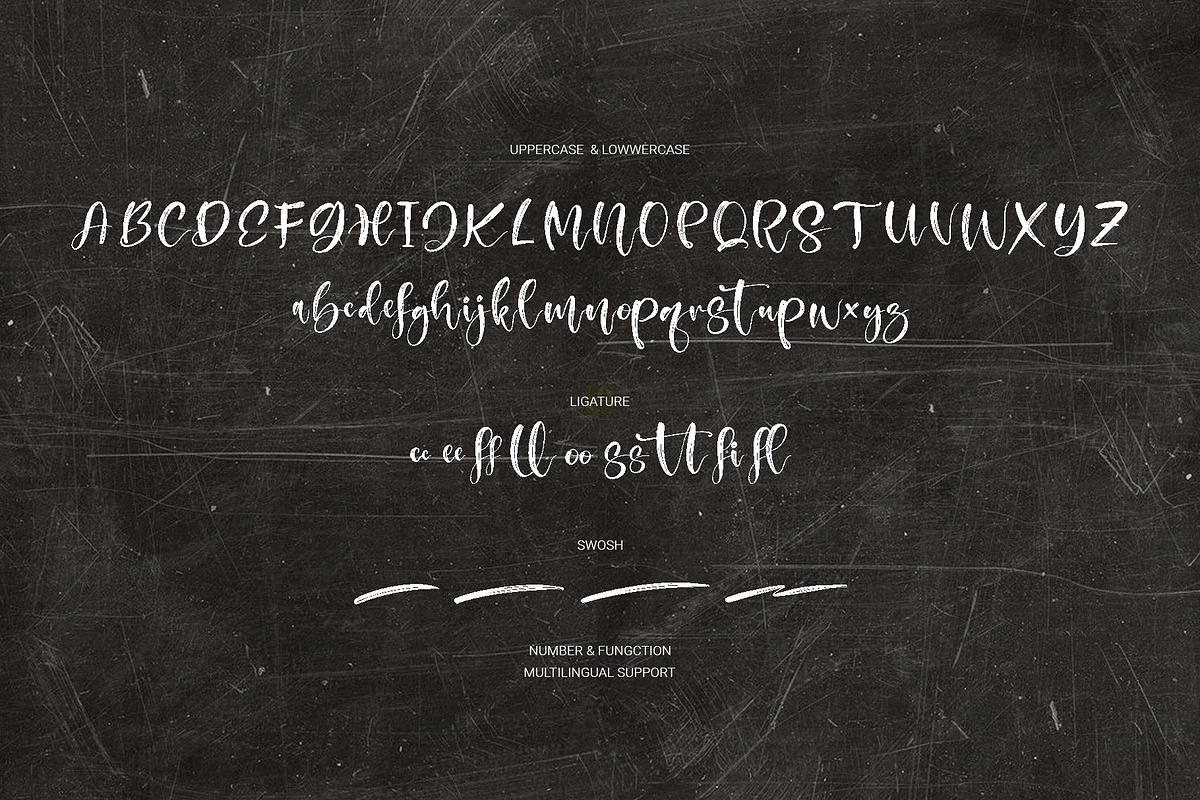 UPPERCASE & LOWWERCASE
ABCDEFGHIJKLMNOPQRSTUVWXYZ
abcdefghijklmnopqrstupwxyz
LIGATURE
cc ee ff ll oo ss tt fi fl
SWOSH
NUMBER & FUNGCTION
MULTILINGUAL SUPPORT